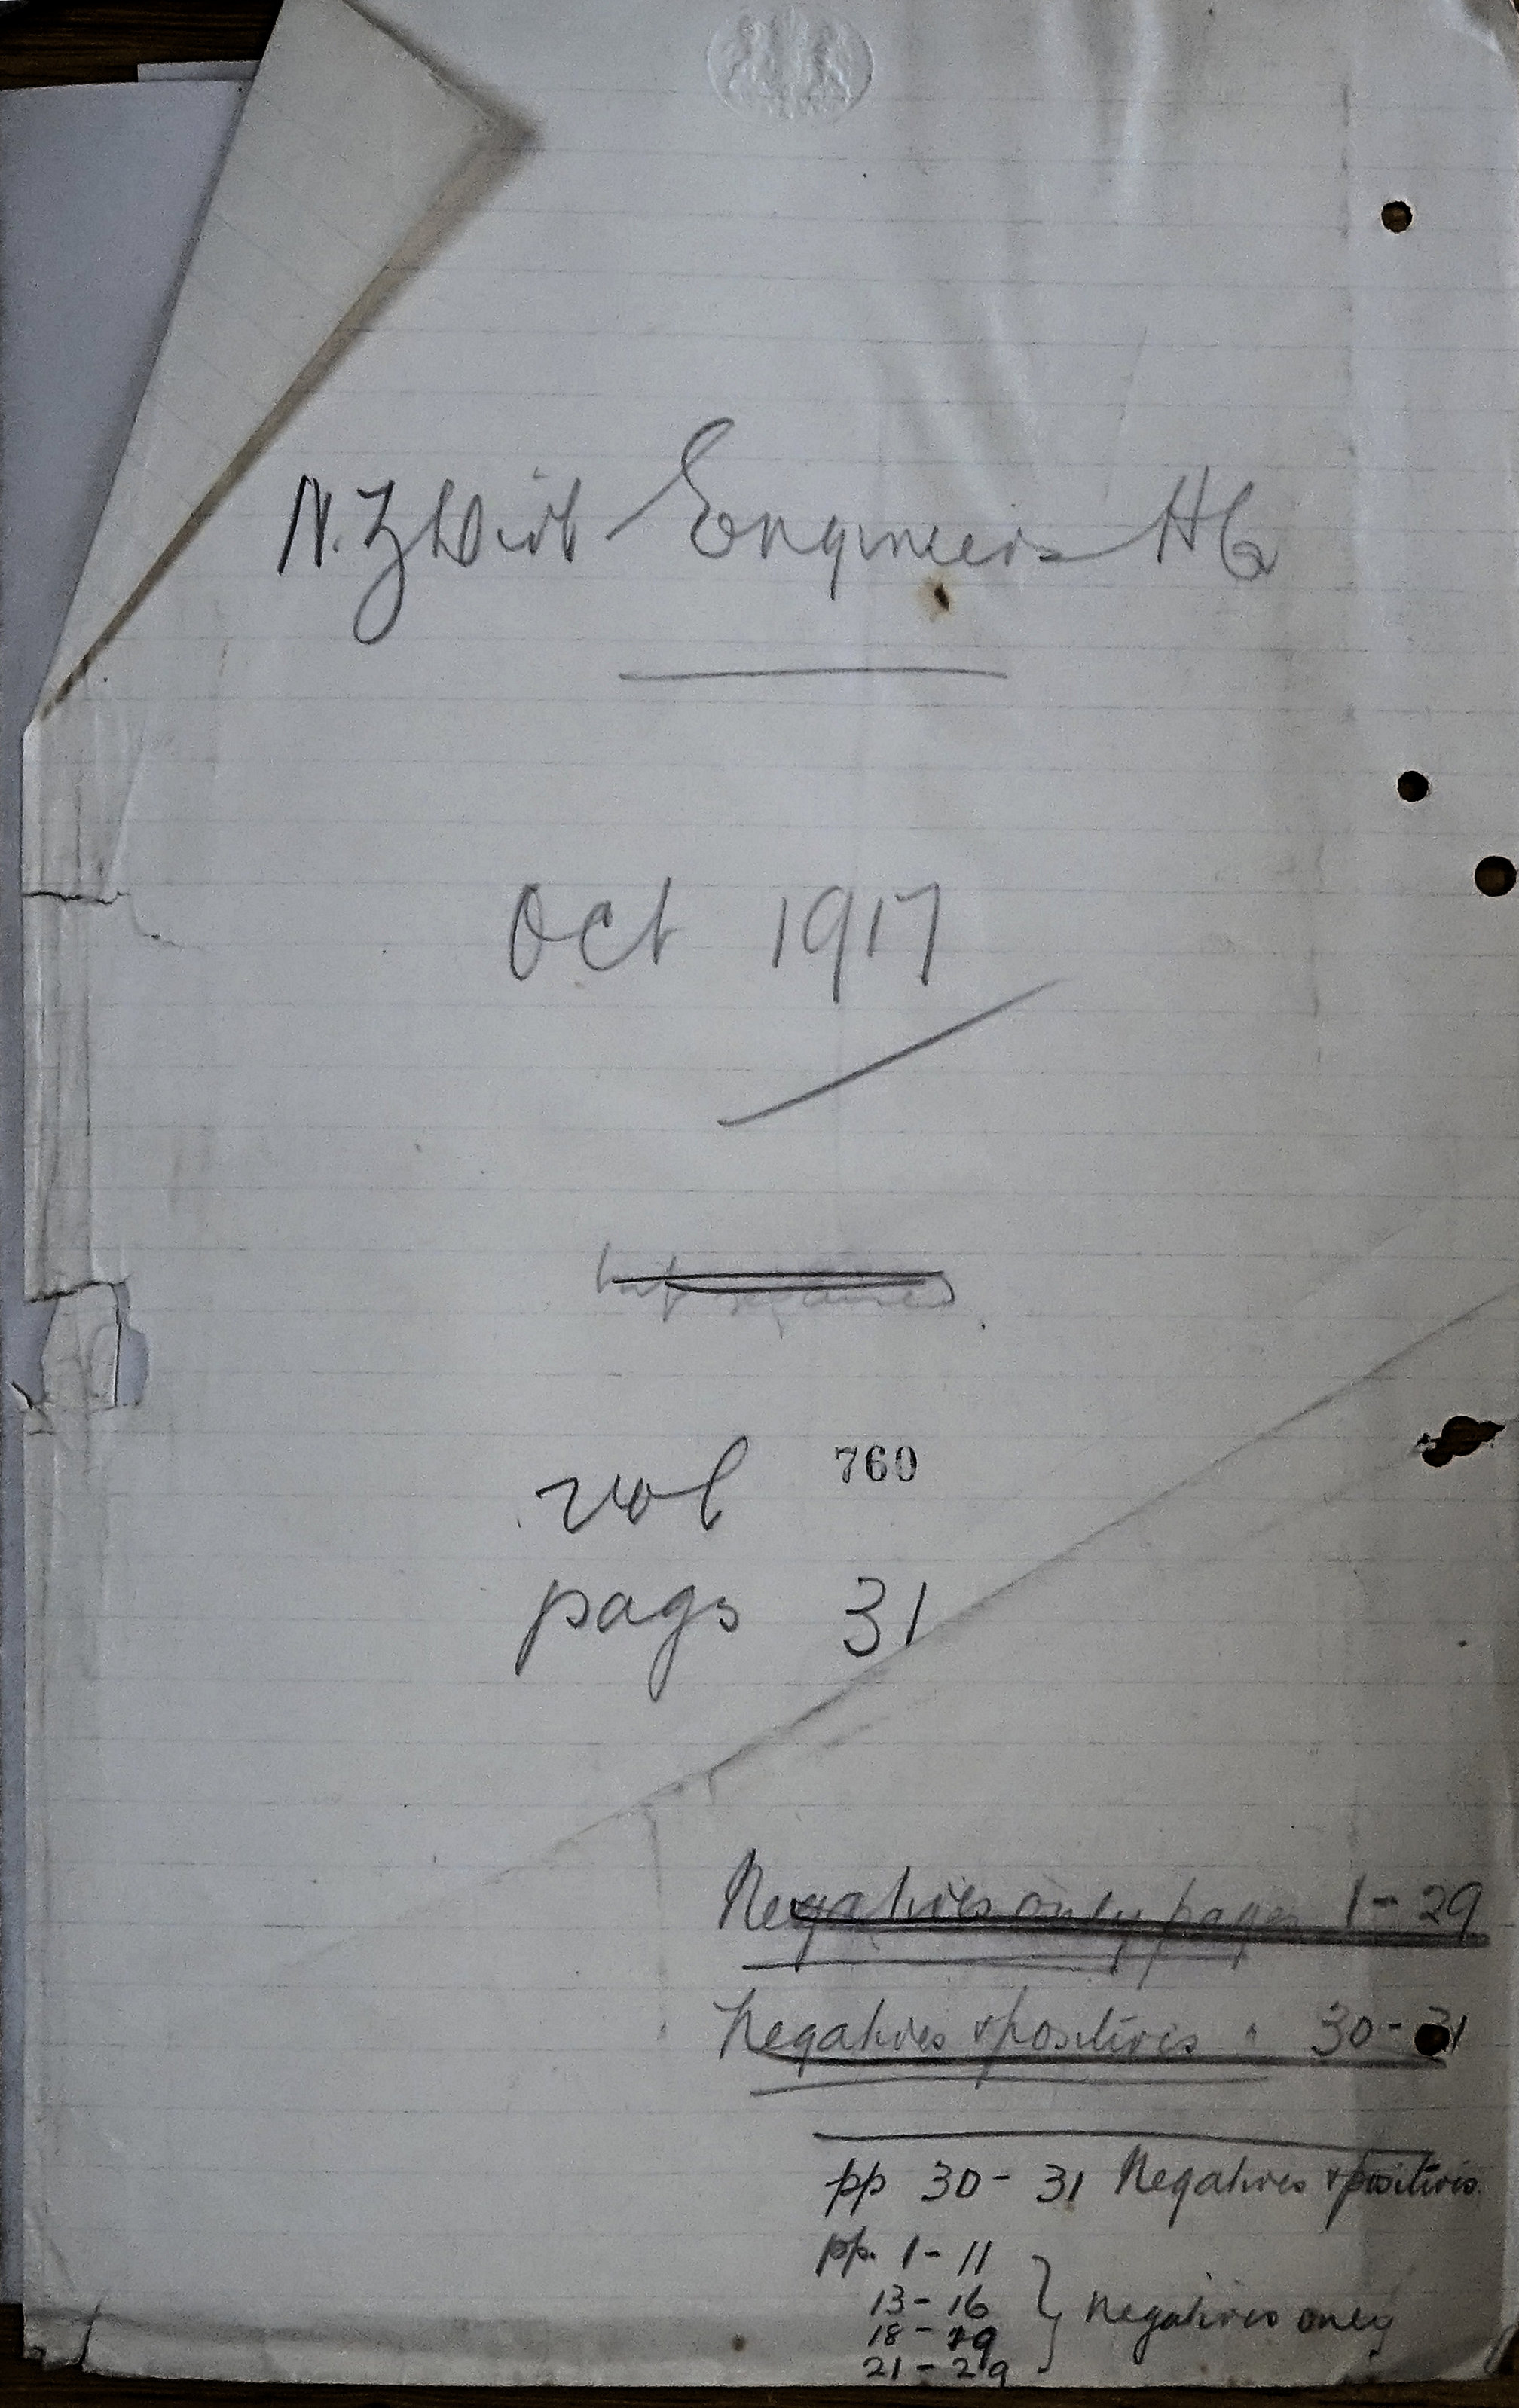 N.Z Div Engineers HQ
Oct 1917
vol 760
pags 31
Negatives only pages 1-29
Negatives & positives " 30-31
pp 30-31 Negatives & positives
pp. 1-11
13-16
18-19
21-29
} Negatives only